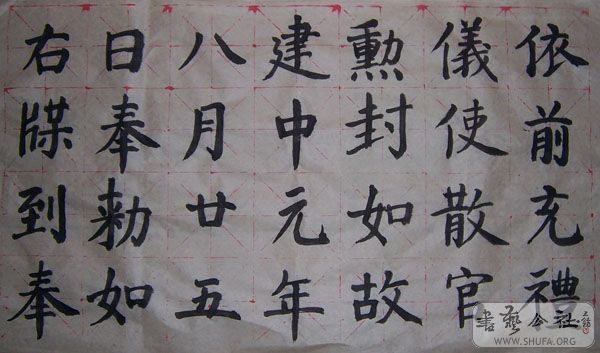 依前充禮
儀使散官
勳封如故
建中元年
八月廿五
日奉勅如
右牒到奉
書藝公社
WWW.SHUFA.ORG